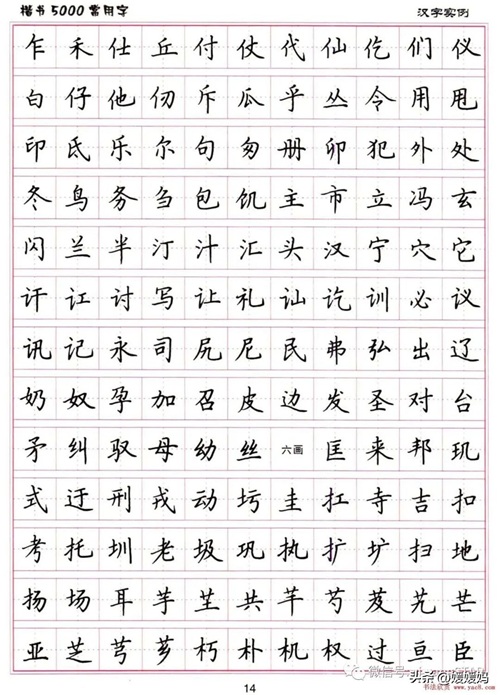 楷书5000常用字 汉字实例
乍禾仕丘付仗代仙仡们仪
白仔他仞斥瓜乎丛令用甩
印氐乐尔句匆册卯犯外处
冬鸟务刍包饥主市立冯玄
闪兰半汀汁汇头汉宁穴它
讦讧讨写让礼讪讫训必议
讯记永司尻尼民弗弘出辽
奶奴孕加召皮边发圣对台
矛纠驭母幼丝六画匡耒邦玑
式迂刑戎动圬圭扛寺吉扣
考托圳老圾巩执扩圹扫地
扬场耳芋芏共芊芍芨芄芒
亚芝芎芗朽朴机权过亘臣
14
微信号
头条@媛媛妈
书法欣赏 www.yac8.com